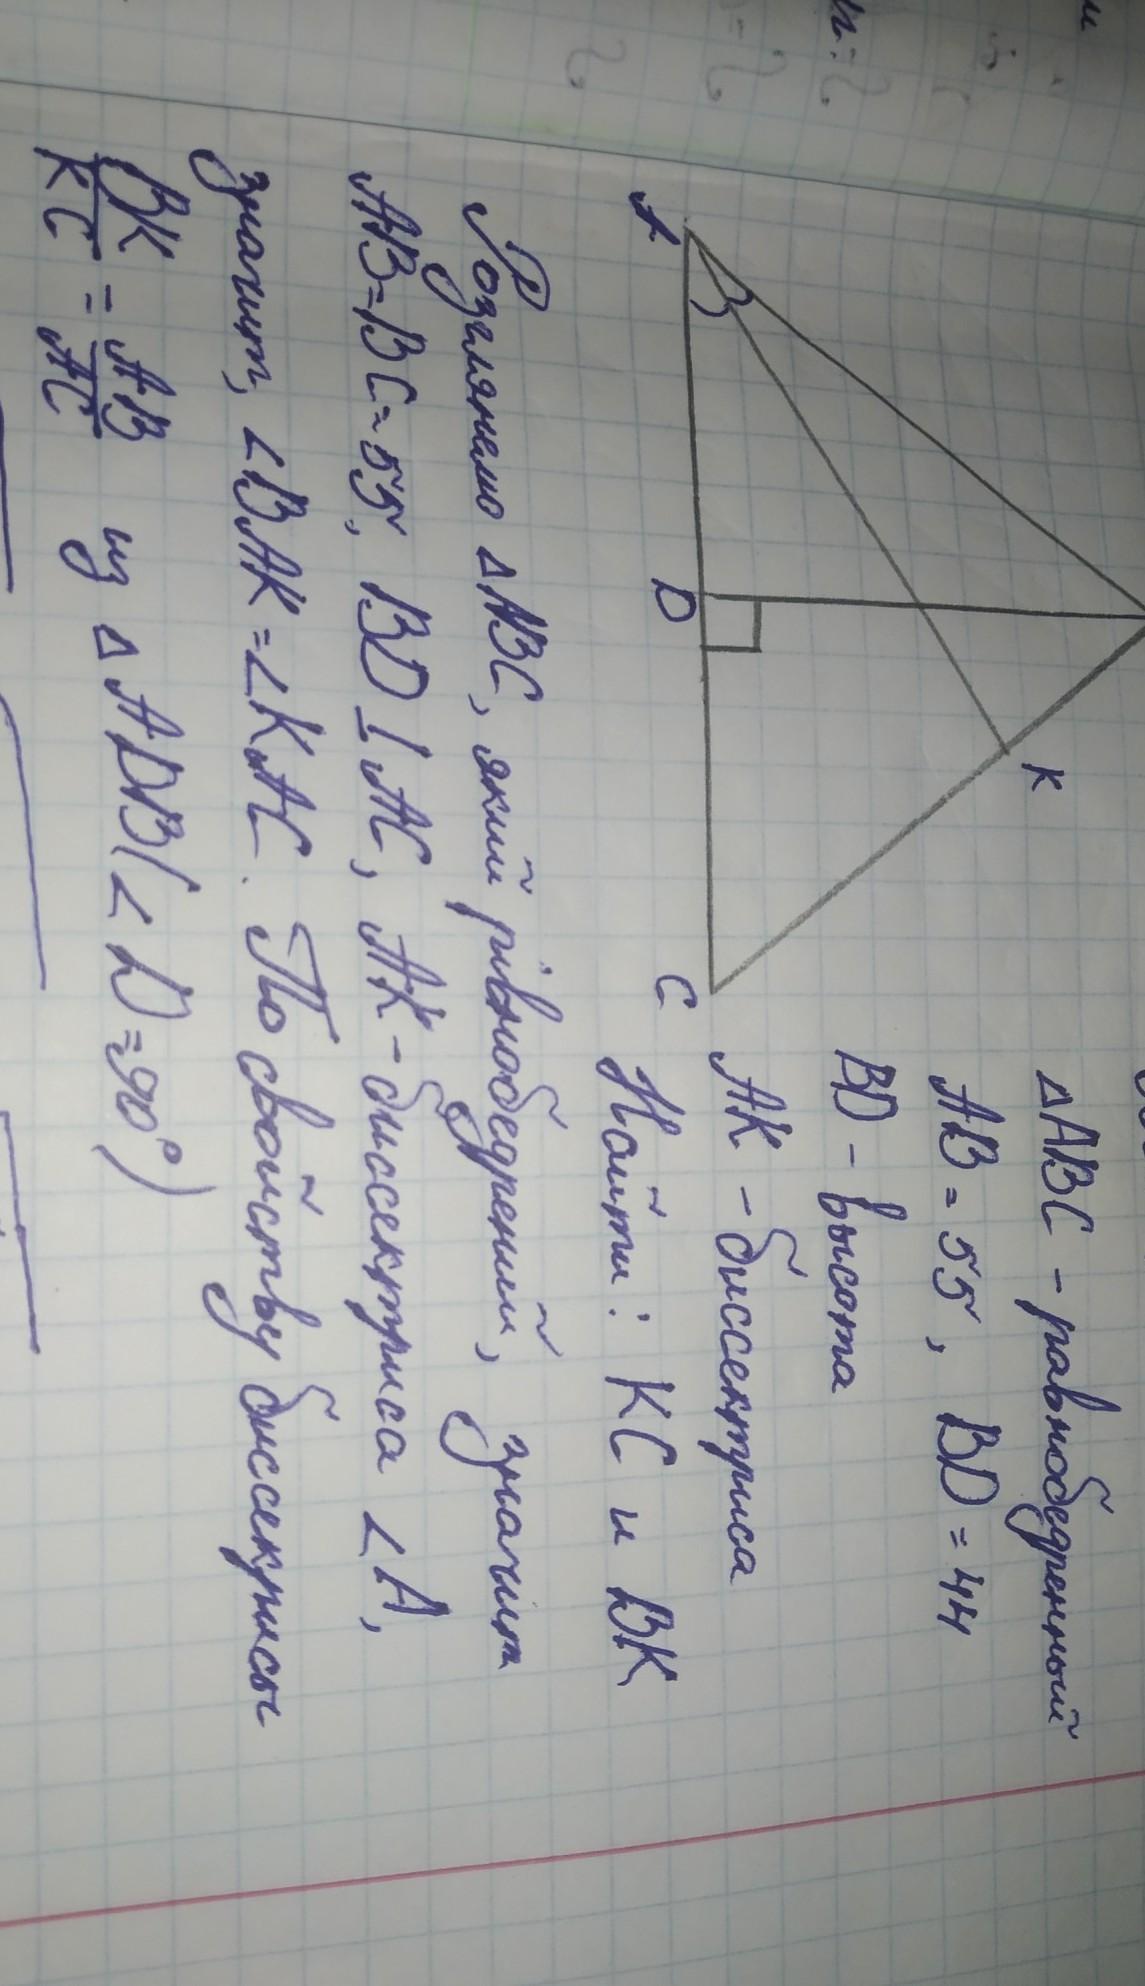 A
D
C
K
ΔABC - равнобедренный
AB = 55, BD = 44
BD - высота
AK - биссектриса
Найти: KC и BK
Розглянемо ΔABC, який рівнобедрений, значит
AB = BC = 55, BD ⊥ AC, AK - биссектриса ∠A,
значит, ∠BAK = ∠KAC. По свойству биссекрисы
BK/KC = AB/AC из ΔADB (∠D = 90°)